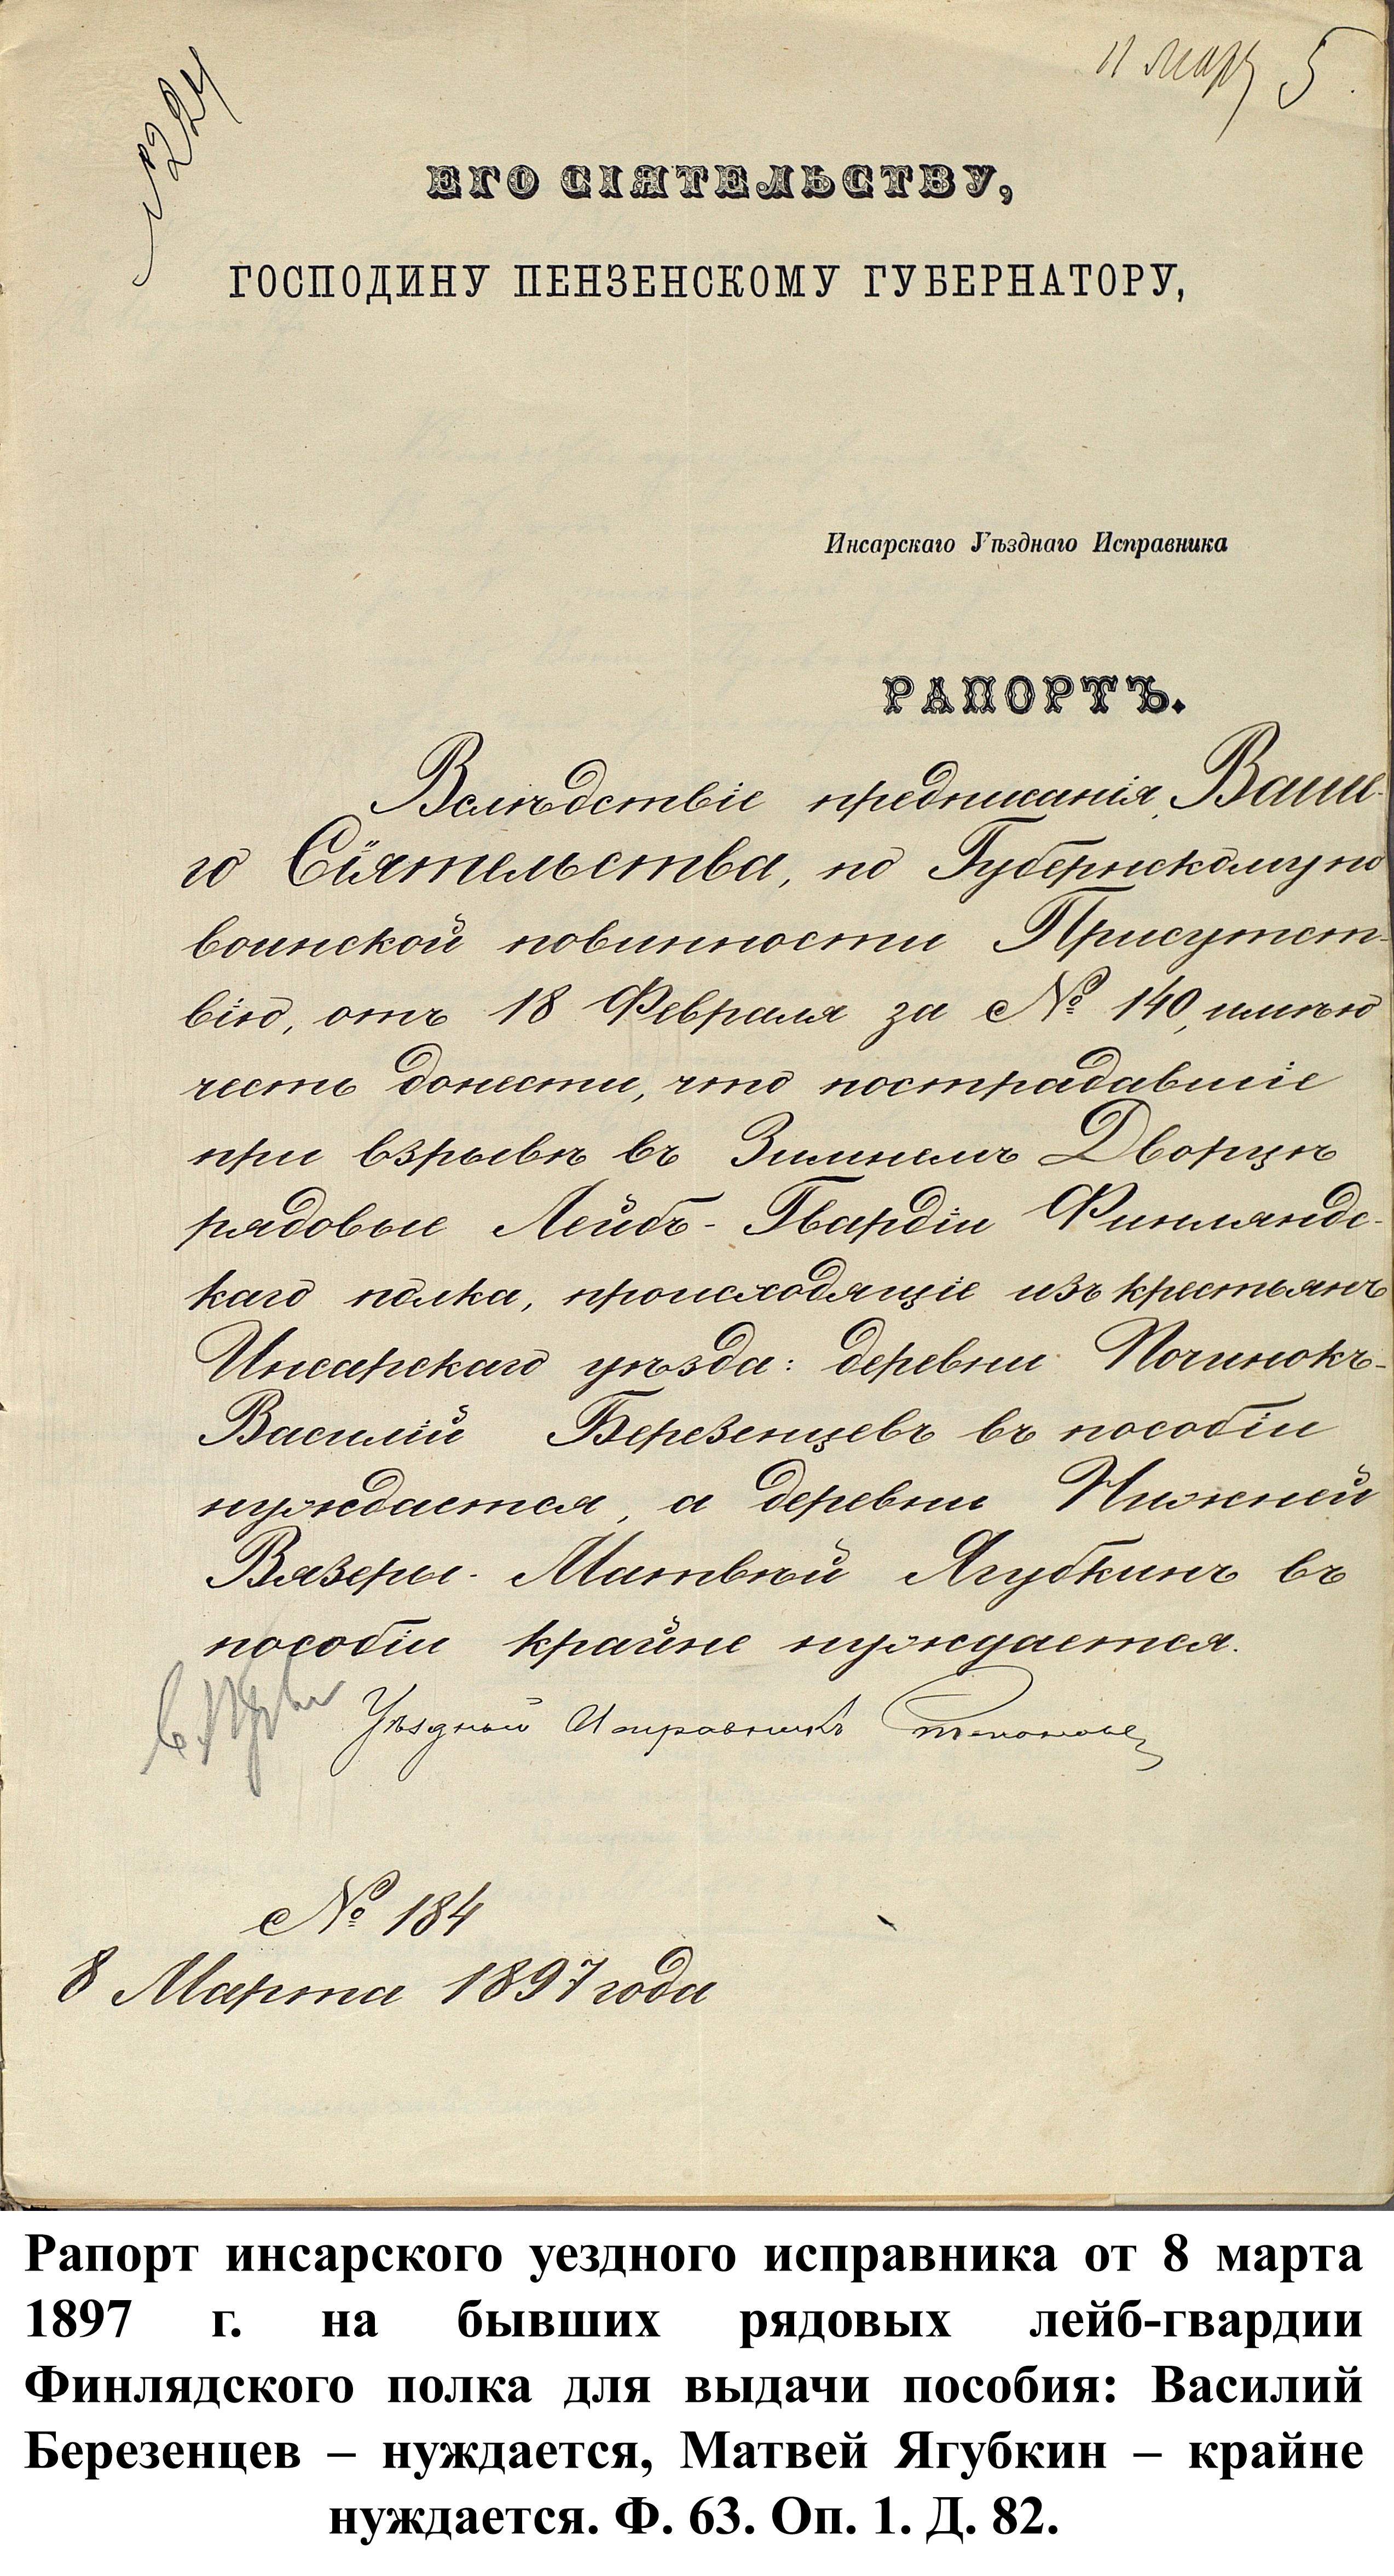 № 224
11 Мар 5
ЕГО СІЯТЕЛЬСТВУ,
ГОСПОДИНУ ПЕНЗЕНСКОМУ ГУБЕРНАТОРУ,
Инсарскаго Уѣзднаго Исправника
РАПОРТЪ.
Вслѣдствіе предписанія, Ваше-
го Сіятельства, по Губернскому по
воинской повинности Присутст-
вію, отъ 18 Февраля за № 140, имѣю
честь донести, что пострадавшіе
при взрывѣ въ Зимнемъ Дворцѣ
рядовые Лейбъ-Гвардіи Финляндс-
каго полка, происходящіе изъ крестьянъ
Инсарскаго уѣзда: деревни Починокъ-
Василій Березенцевъ въ пособіи
нуждается, а деревни Нижней
Вязеры- Матвѣй Ягубкинъ въ
пособіи крайне нуждается.
Уѣздный Исправникъ
№ 184
8 Марта 1897 года
Рапорт инсарского уездного исправника от 8 марта
1897 г. на бывших рядовых лейб-гвардии
Финлядского полка для выдачи пособия: Василий
Березенцев – нуждается, Матвей Ягубкин – крайне
нуждается. Ф. 63. Оп. 1. Д. 82.